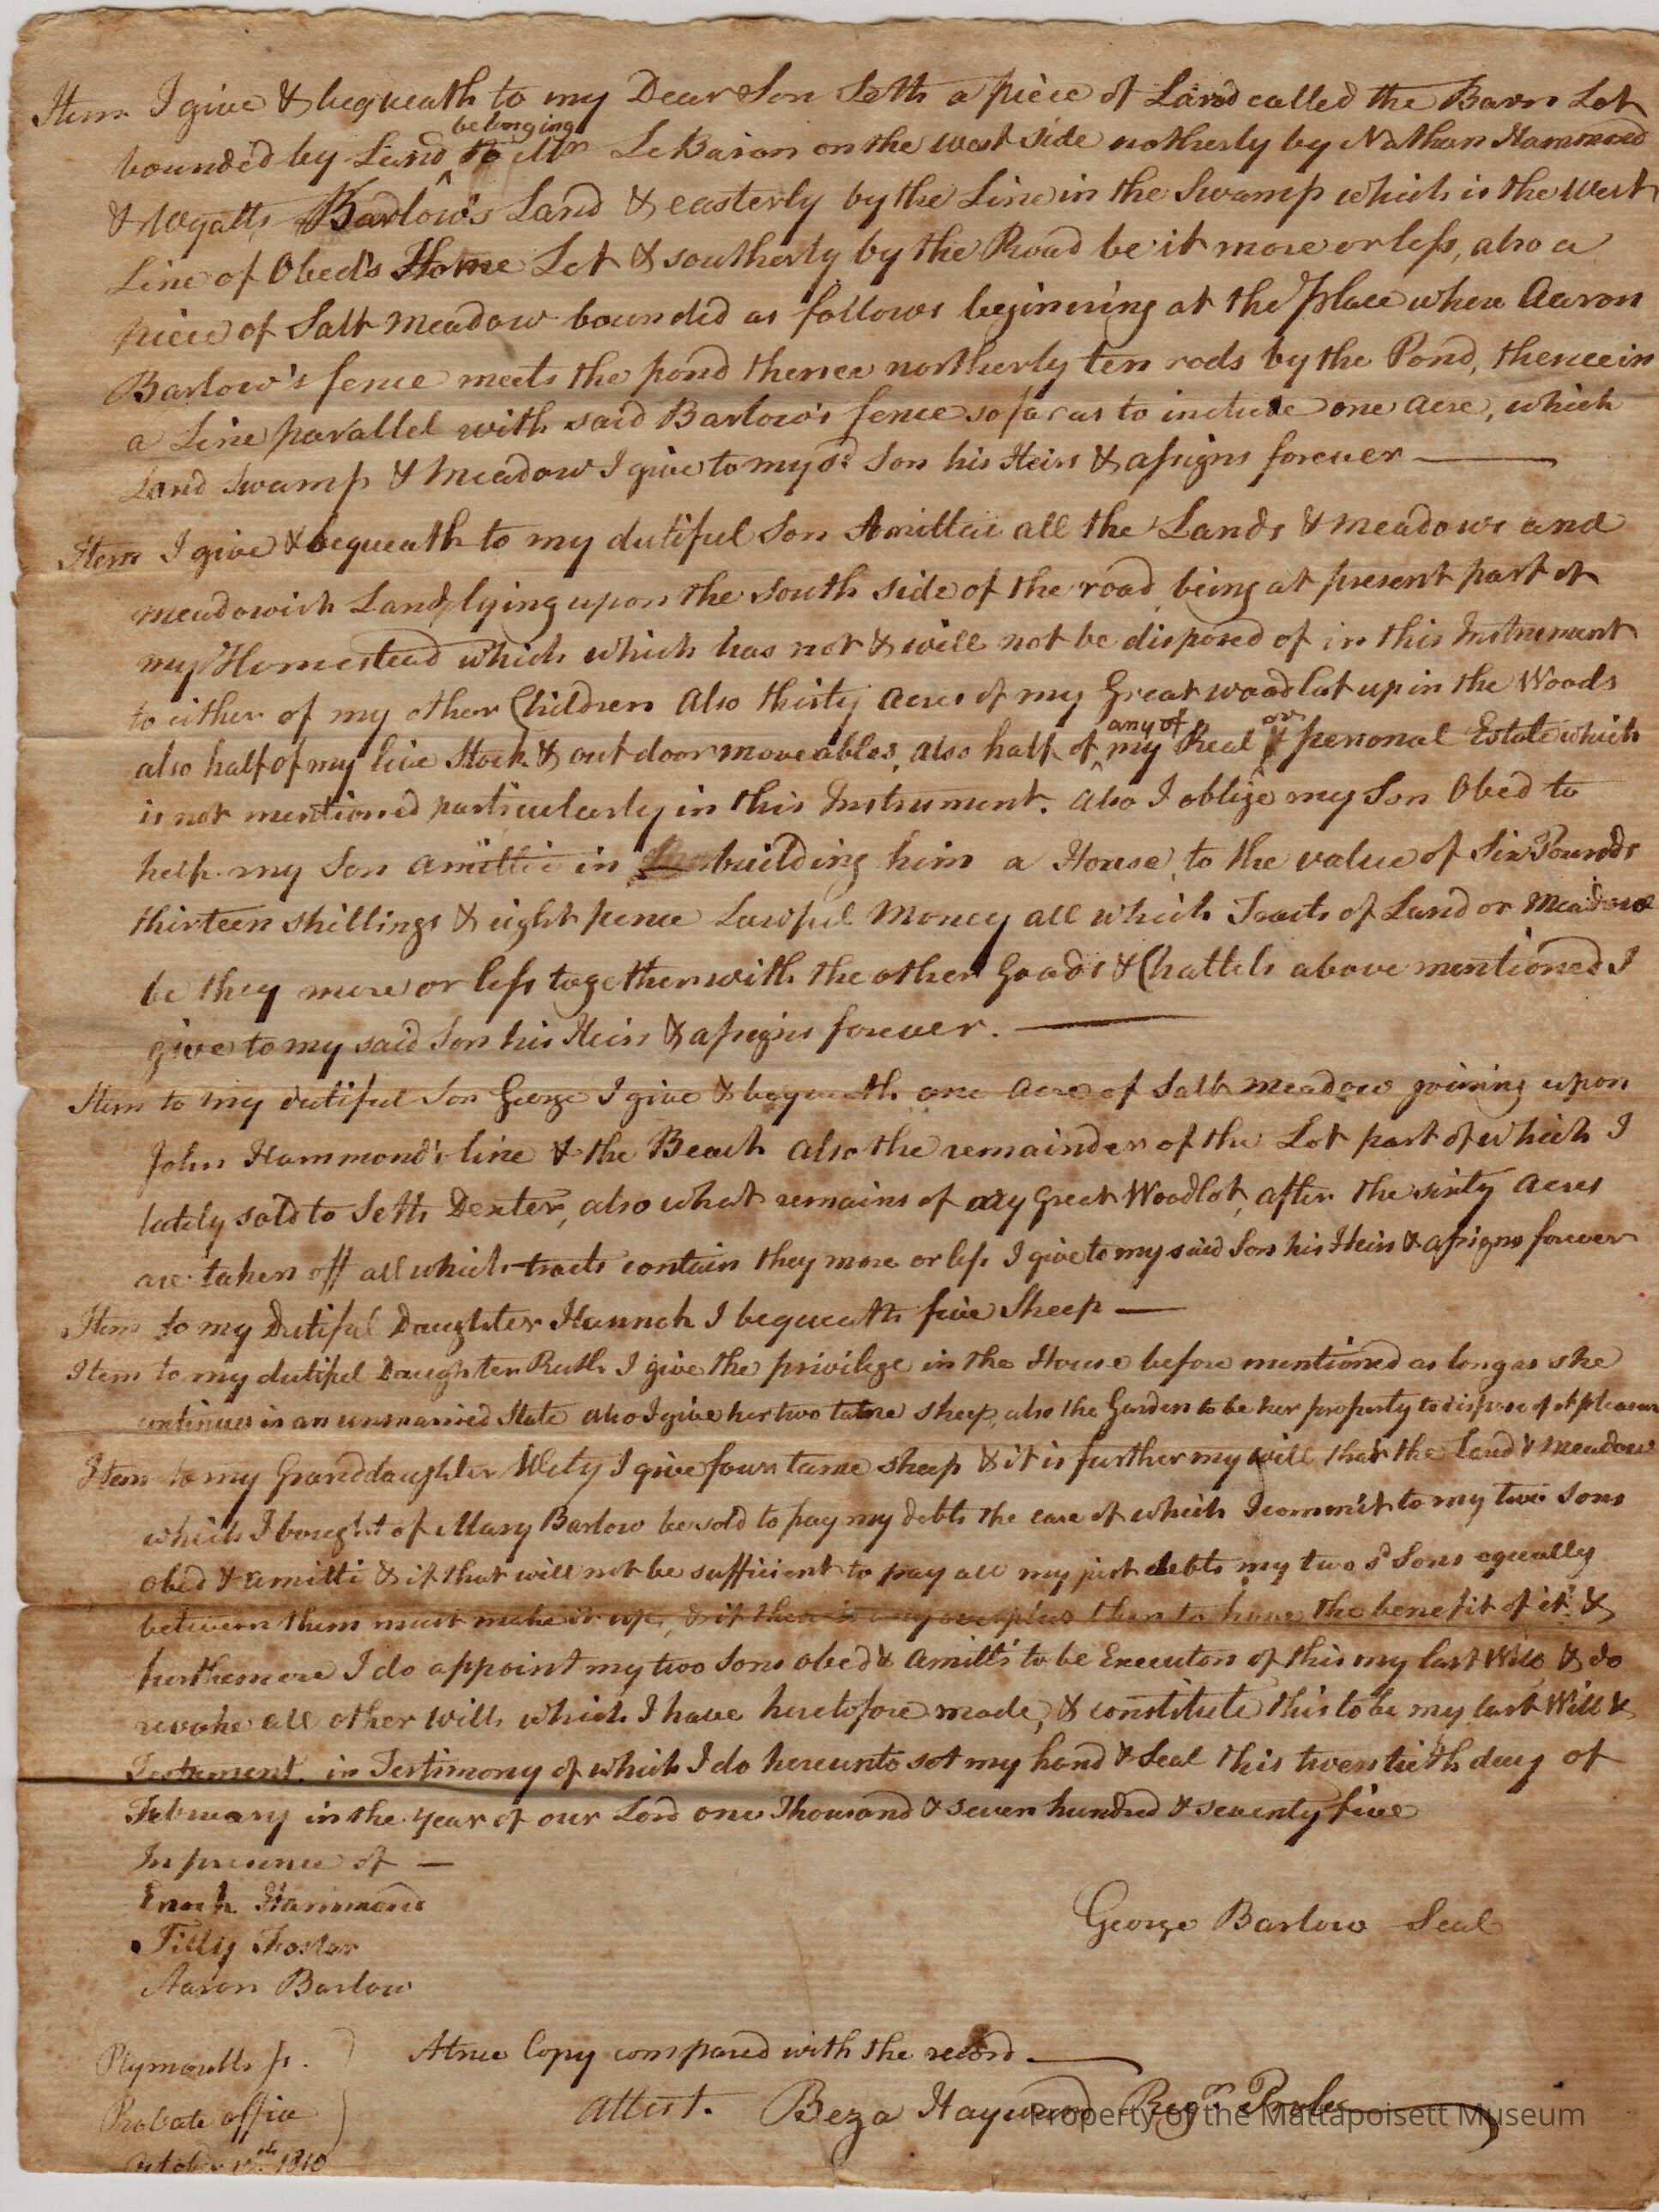 Item I give & bequeath to my Dear Son Seth a piece of Land called the Barn Lot
belonging
bounded by Land to Mr LeBaron on the west side northerly by Nathan Hammond
& Wyatts Barlow's Land & easterly by the Line in the Swamp which is the West
Line of Obed's Home Lot & southerly by the Road be it more or less, also a
piece of Salt Meadow bounded as follows begining at the place where Aaron
Barlow's fence meets the pond thence northerly ten rods by the Pond, thence in
a Line parallel with said Barlow's fence so far as to include one acre, which
Land Swamp & Meadow I give to my sd Son his Heirs & assigns forever
Item I give & bequeath to my dutiful Son Amittai all the Lands & meadows and
meadowish Land lying upon the South side of the road being at present part of
my Homestead which which has not & will not be disposed of in this Instrument
to either of my other Children Also thirty Acres of my Great woodlot up in the Woods
any of or
also half of my live Stock & out door moveables, also half of my Real & personal Estate which
is not mentioned particularly in this Instrument. Also I oblige my Son Obed to
help my Son Amittai in building him a House, to the value of Six Pounds
thirteen shillings & eight pence Lawful Money all which Tracts of Land or Meadow
be they more or less together with the other Goods & Chattels above mentioned I
give to my said Son his Heirs & assigns forever.
Item to my dutiful Son George I give & bequeath one Acre of Salt meadow joining upon
John Hammond's line & the Beach Also the remainder of the Lot part of which I
lately sold to Seth Dexter, also what remains of my Great Woodlot, after the sixty Acres
are taken off all which tracts contain they more or less I give to my said Son his Heirs & assigns forever
Item to my Dutiful Daughter Hannah I bequeath five Sheep
Item to my dutiful Daughter Ruth I give the privilege in the House before mentioned as long as she
continues in an unmarried State also I give her two tame sheep, also the Garden to be her property to dispose of at pleasure
Item to my Granddaughter I give four tame sheep & it is further my will that the Land & meadow
which I bought of Mary Barlow be sold to pay my debts the care of which I commit to my two Sons
Obed & Amitti & if that will not be sufficient to pay all my just debts my two sd Sons equally
between them must make it up, & if there is any overplus then to have the benefit of it &
furthermore I do appoint my two Sons Obed & Amitti to be Executors of this my last Will & do
revoke all other Wills which I have heretofore made, & constitute this to be my last Will &
Testament. in Testimony of which I do hereunto set my hand & Seal this twentieth day of
February in the year of our Lord one Thousand & seven hundred & seventy five
In presence of
Enoch Hammond
George Barlow Seal
Filly Foster
Aaron Barlow
Plymouth ss.
A true Copy compared with the record
Attest. Beza Hayward Regr. Probe
Probate office
October 1810
Property of the Mattapoisett Museum